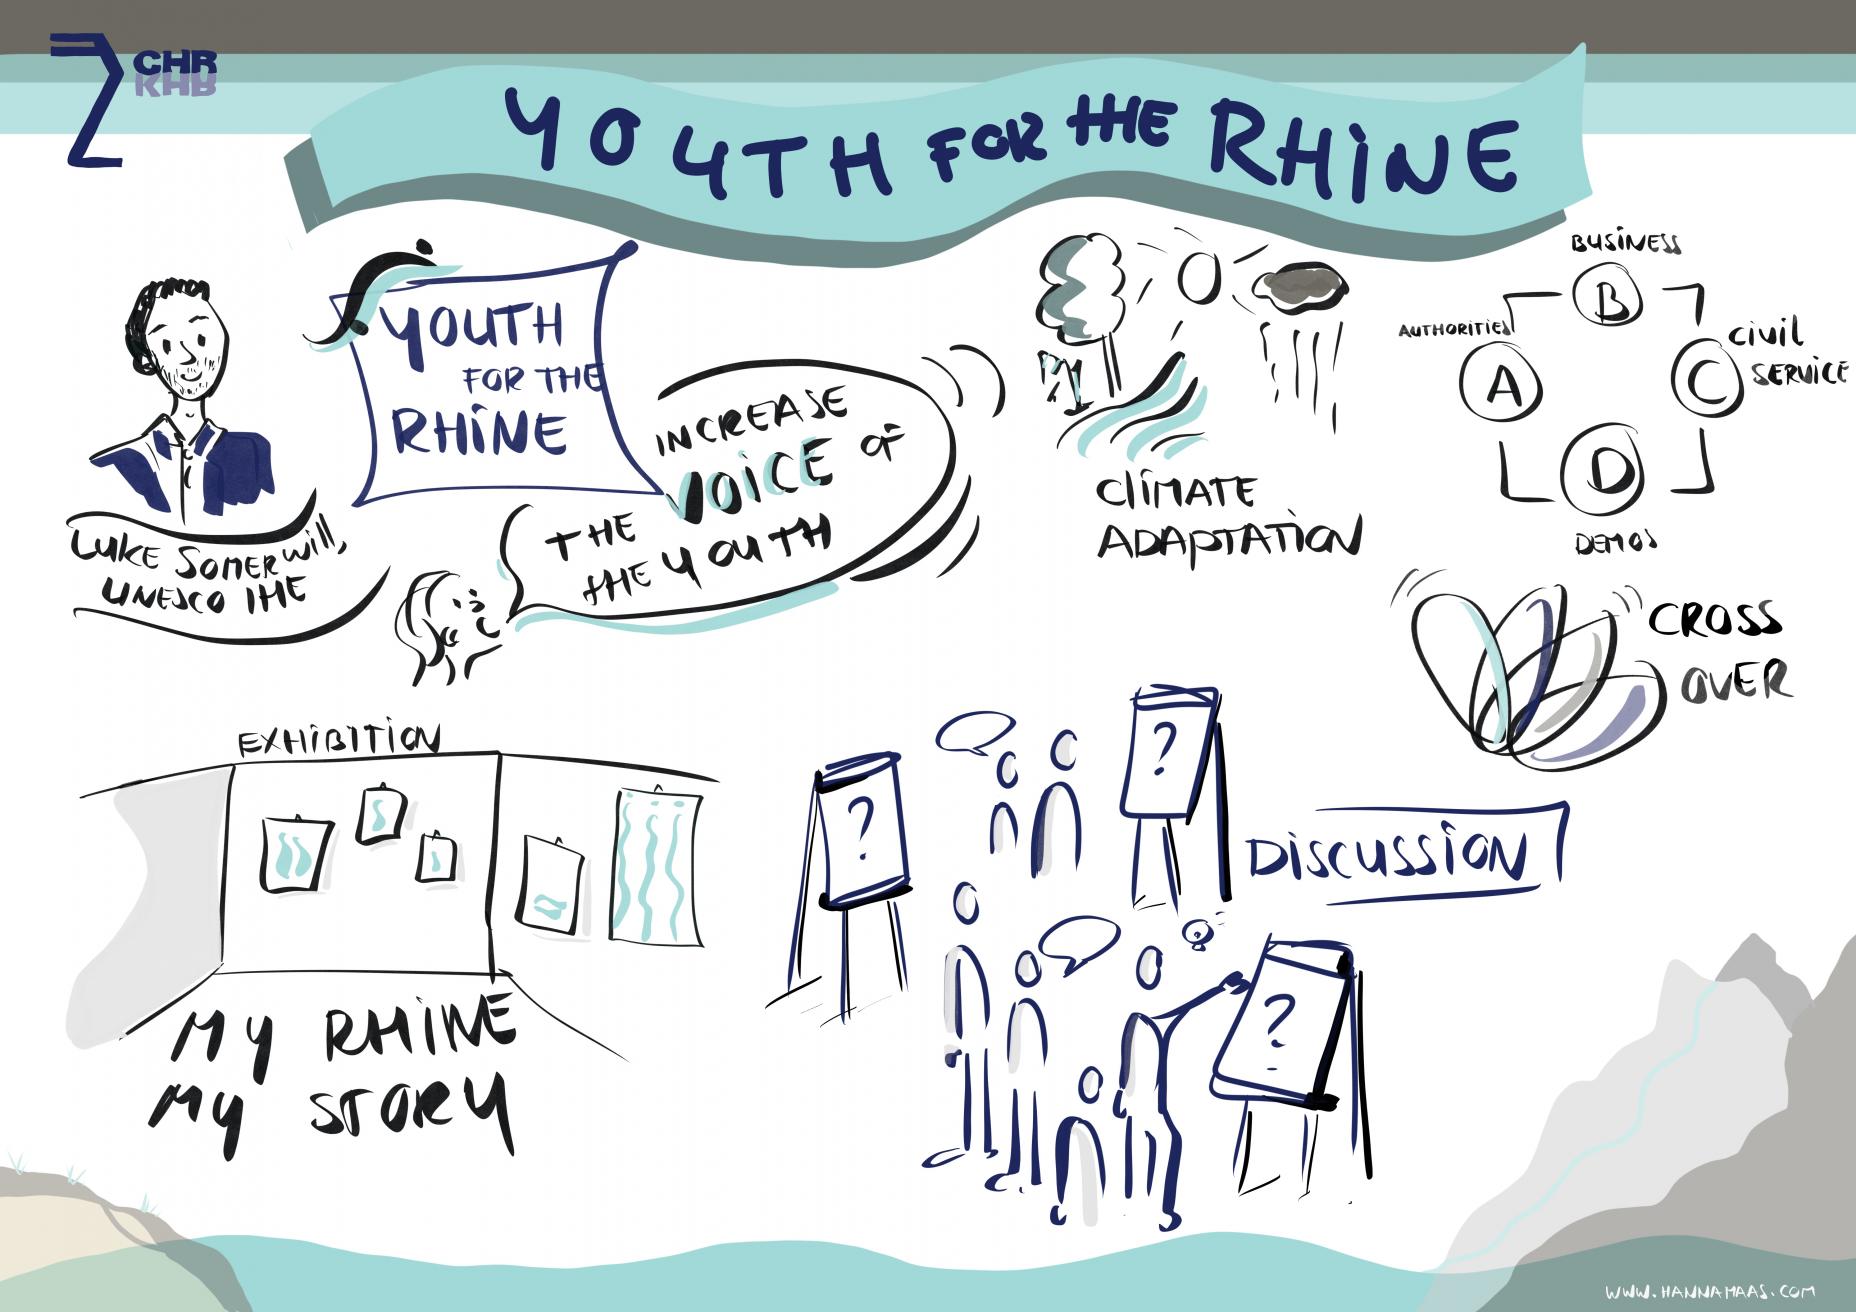 CHR
KHR
YOUTH FOR THE RHINE
YOUTH
FOR THE
RHINE
LUKE SOMERWILL,
UNESCO IHE
INCREASE
VOICE OF
THE
THE YOUTH
CLIMATE
ADAPTATION
BUSINESS
B
AUTHORITIES
A
CIVIL
SERVICE
C
D
DEMOS
CROSS
OVER
EXHIBITION
MY RHINE
MY STORY
?
?
?
DISCUSSION
WWW.HANNAMAAS.COM